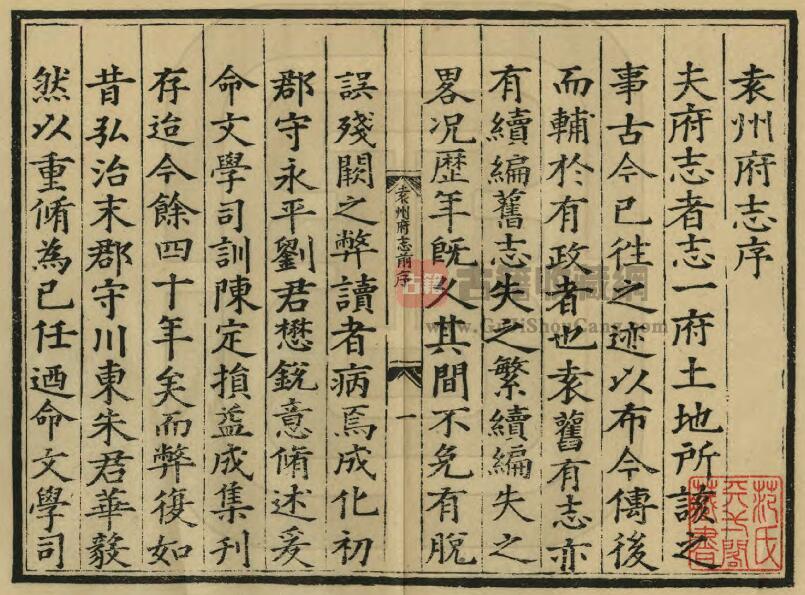 袁州府志序
夫府志者志一府土地所該之
事古今已徃之迹以布今傳後
而輔於有政者也袁舊有志亦
有續編舊志失之繁續編失之
畧况歷年旣久其間不免有脫
袁州府志前序
一
誤殘闕之弊讀者病焉成化初
郡守永平劉君懋銳意脩述爰
命文學司訓陳定損益成集刊
存迨今餘四十年矣而弊復如
昔弘治末郡守川東朱君華毅
然以重脩為已任迺命文學司
范氏
天一閣
藏書
古籍
古籍收藏網
www.GuJiShouCang.com